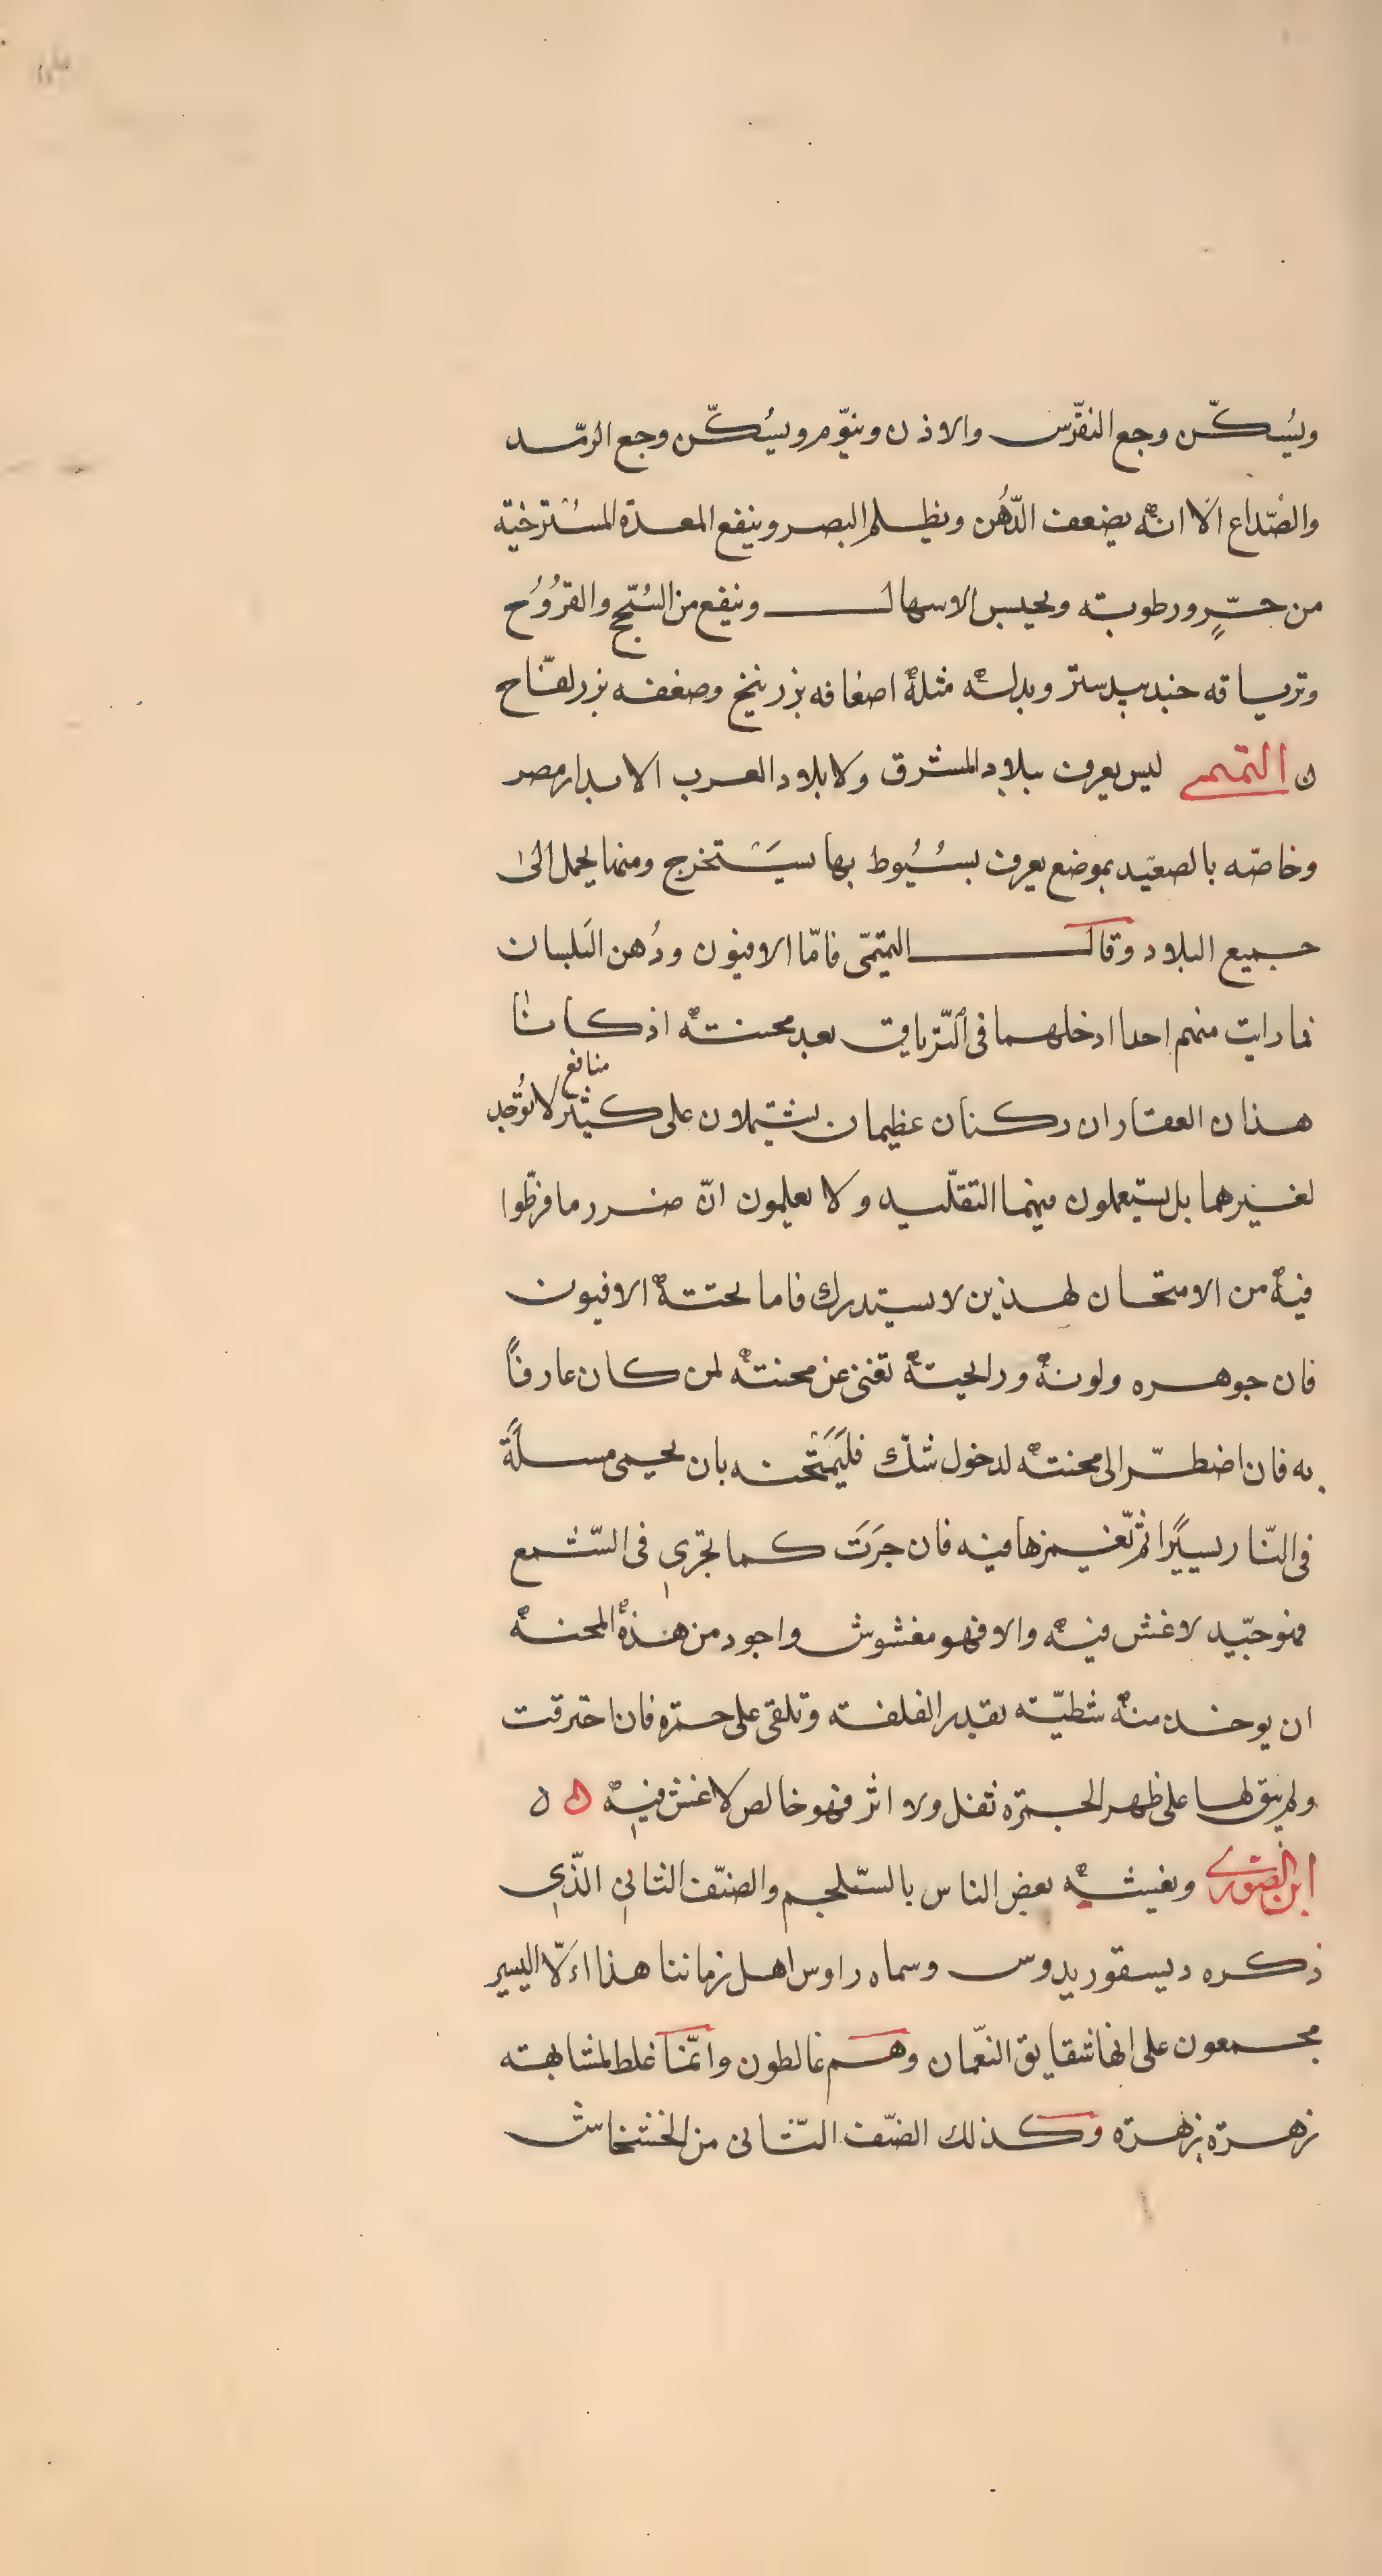 ويُسكّن وجع النقرّس والاذن وينوّم ويسُكّن وجع الرمّد
والصّداع الا انه يضعف الذّهُن ويظلم البصر وينفع المعدة المسترخية
من حرٍّ ورطوبته ويحبس الاسهال وينفع من السُحّج والقرُوُح
وترياقه جندبيدستر وبدله مثلهٔ اضعافه بزر بنج وضعفه بزر لفّاح
ن التميمي ليس يعرف ببلاد المشرق ولا بلاد العرب الا بديار مصر
وخاصّه بالصعيّد بموضع يعرف بسُيُوط بها يسَتخرج ومنها يحمل الىٰ
جميع البلاد وقال التميمّى فامّا الافيون ودُهن البَلسان
فما رايت منهم احدا ادخلهما فى التّرياق بعد محنته اذ كانا
هذان العقاران ركنان عظيمان يشتملون على كثير منافع لا تُوجد
لغيرهما بل يستعملون فيهما التقلّيد ولا يعلمون انّ ضرر ما فرطّوا
فيهٔ من الامتحان لهذين لا يستدرك فاما محنتهٔ الافيون
فان جوهره ولونهٔ ورايحتهٔ تغنى عن محنته لمن كان عارفاً
به فان اضطرّ الى محنته لدخول شكّ فليَمَتْحنه بان يحمى مسلّةً
فى النّار يسيرًا ثمّ تّغمزها فيه فان جرَتَ كما تجرّى فى الشّمع
فهو جيّد لا غش فيهٔ والا فهو مغشوش واجود من هذهٔ المحنهٔ
ان يوخذ منهٔ شظيّته بقدر الفلفة وتلقى على جمرة فان احترقت
ولم يبق لها على ظهر الجمرة ثفل ولا اثر فهو خالص لا غش فيهٔ ه ن
ابن الصورى ويغيشه بعض الناس بالسّلجم والصنّف الثانىٖ الذّىٖ
ذكره ديسقوريدوس وسماه راوس اهل زماننا هذا الاّ اليسير
مجمعون على انها شقايق النعّمان وهم غالطون وانّما غلط لمشابهته
زهرة بزهرة وكذلك الصّف الثّانى من الخشخاش